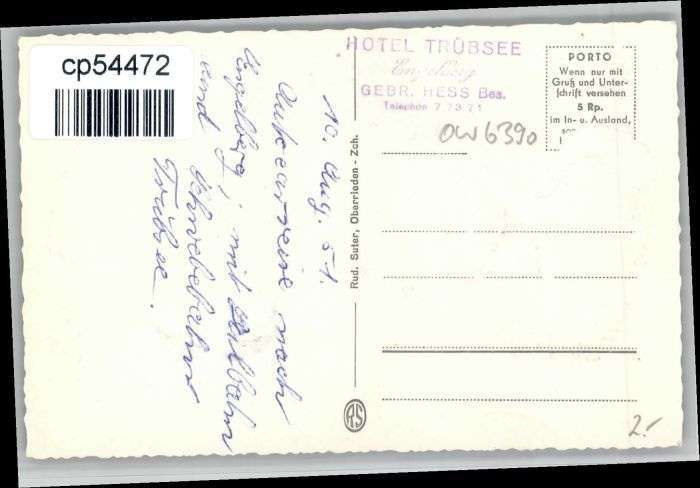 cp54472
10. Aug. 51.
Autocarreise nach
Engelberg, mit Seilbahn
und Schwebebahn
Trübsee.
Rud. Suter, Oberrieden - Zch.
RS
HOTEL TRÜBSEE
Engelberg
GEBR. HESS Bes.
Telephon 7 73 71
OW6390
PORTO
Wenn nur mit
Gruß und Unter-
schrift versehen
5 Rp.
im In- u. Ausland,
2.-